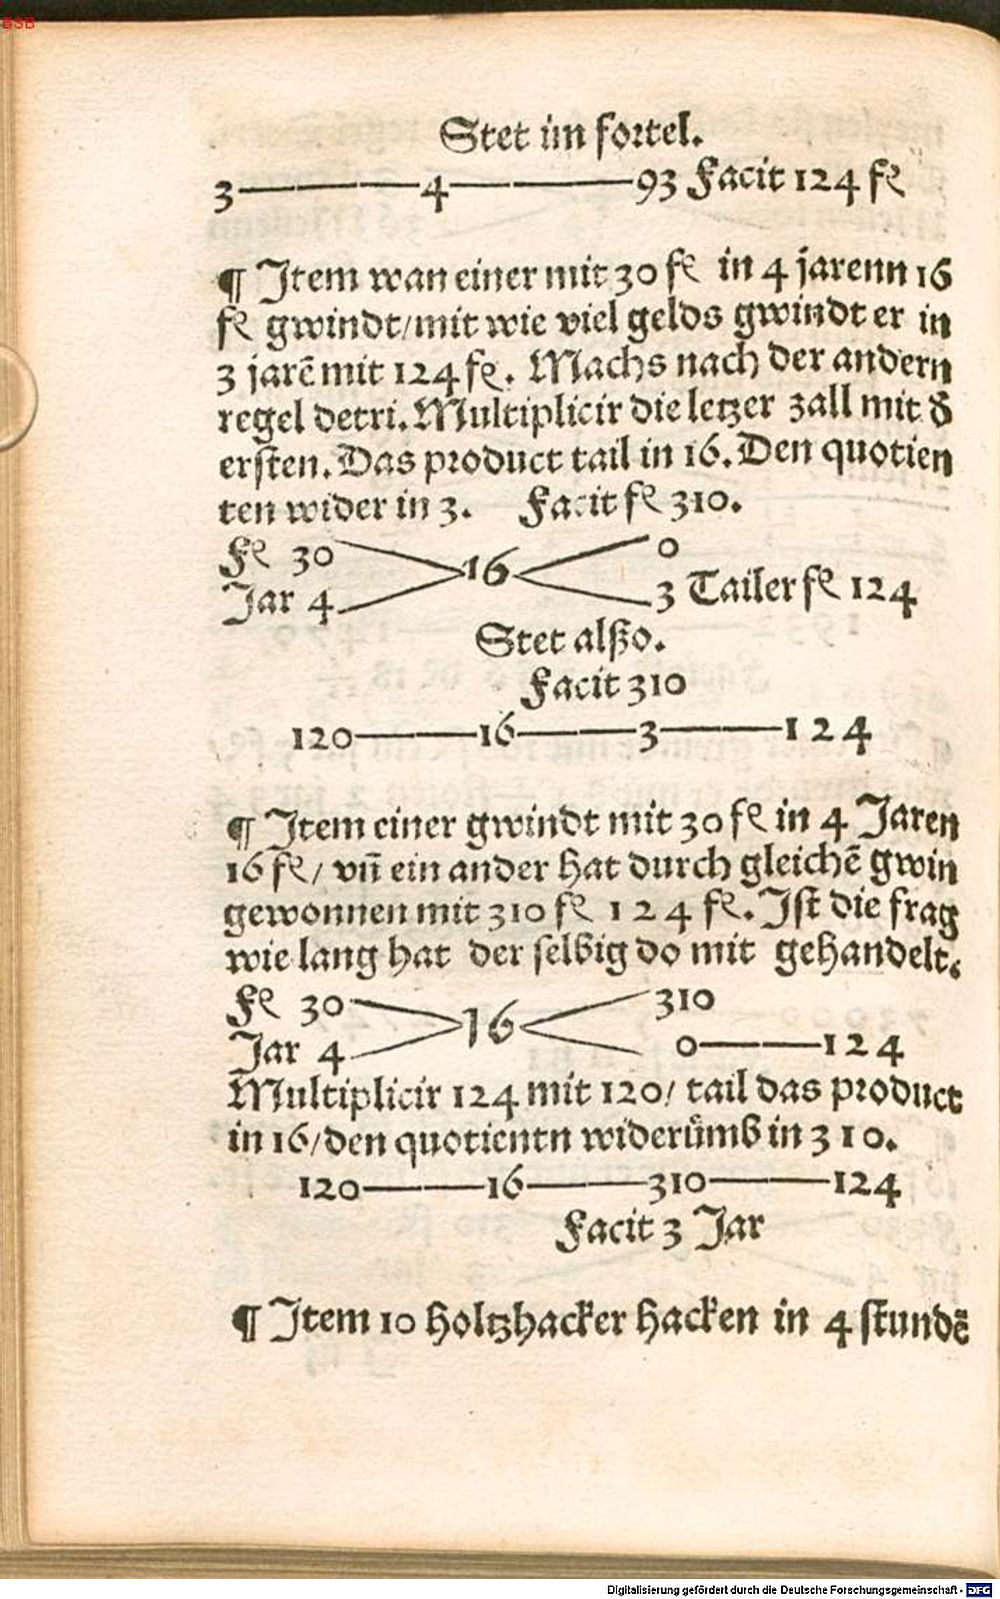 BSB
Stet im fortel.
3————4————93 Facit 124 fl
¶ Item wan einer mit 30 fl in 4 jarenn 16
fl gwindt/mit wie viel gelds gwindt er in
3 jarē mit 124 fl. Machs nach der andern
regel detri. Multiplicir die letzer zall mit d̄
ersten. Das product tail in 16. Den quotien
ten wider in 3. Facit fl 310.
Fl 30 16 0
Jar 4 3 Tailer fl 124
Stet alßo.
Facit 310
120————16————3————124
¶ Item einer gwindt mit 30 fl in 4 Jaren
16 fl/ vn̄ ein ander hat durch gleichē gwin
gewonnen mit 310 fl 124 fl. Ist die frag
wie lang hat der selbig do mit gehandelt.
Fl 30 16 310
Jar 4 0————124
Multiplicir 124 mit 120/ tail das product
in 16/den quotientn widerümb in 310.
120————16————310————124
Facit 3 Jar
¶ Item 10 holtzhacker hacken in 4 stundē
Digitalisierung gefördert durch die Deutsche Forschungsgemeinschaft - DFG